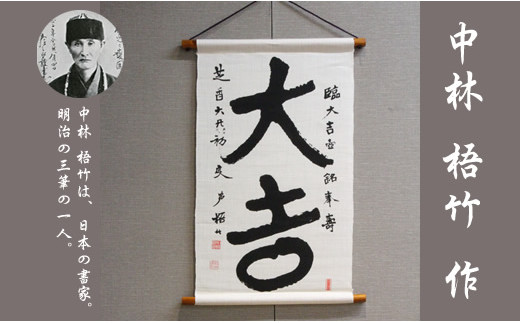 中林 梧竹 作
臨大吉壺銘奉壽
大吉
梧竹
中林 梧竹は、日本の書家。
明治の三筆の一人。